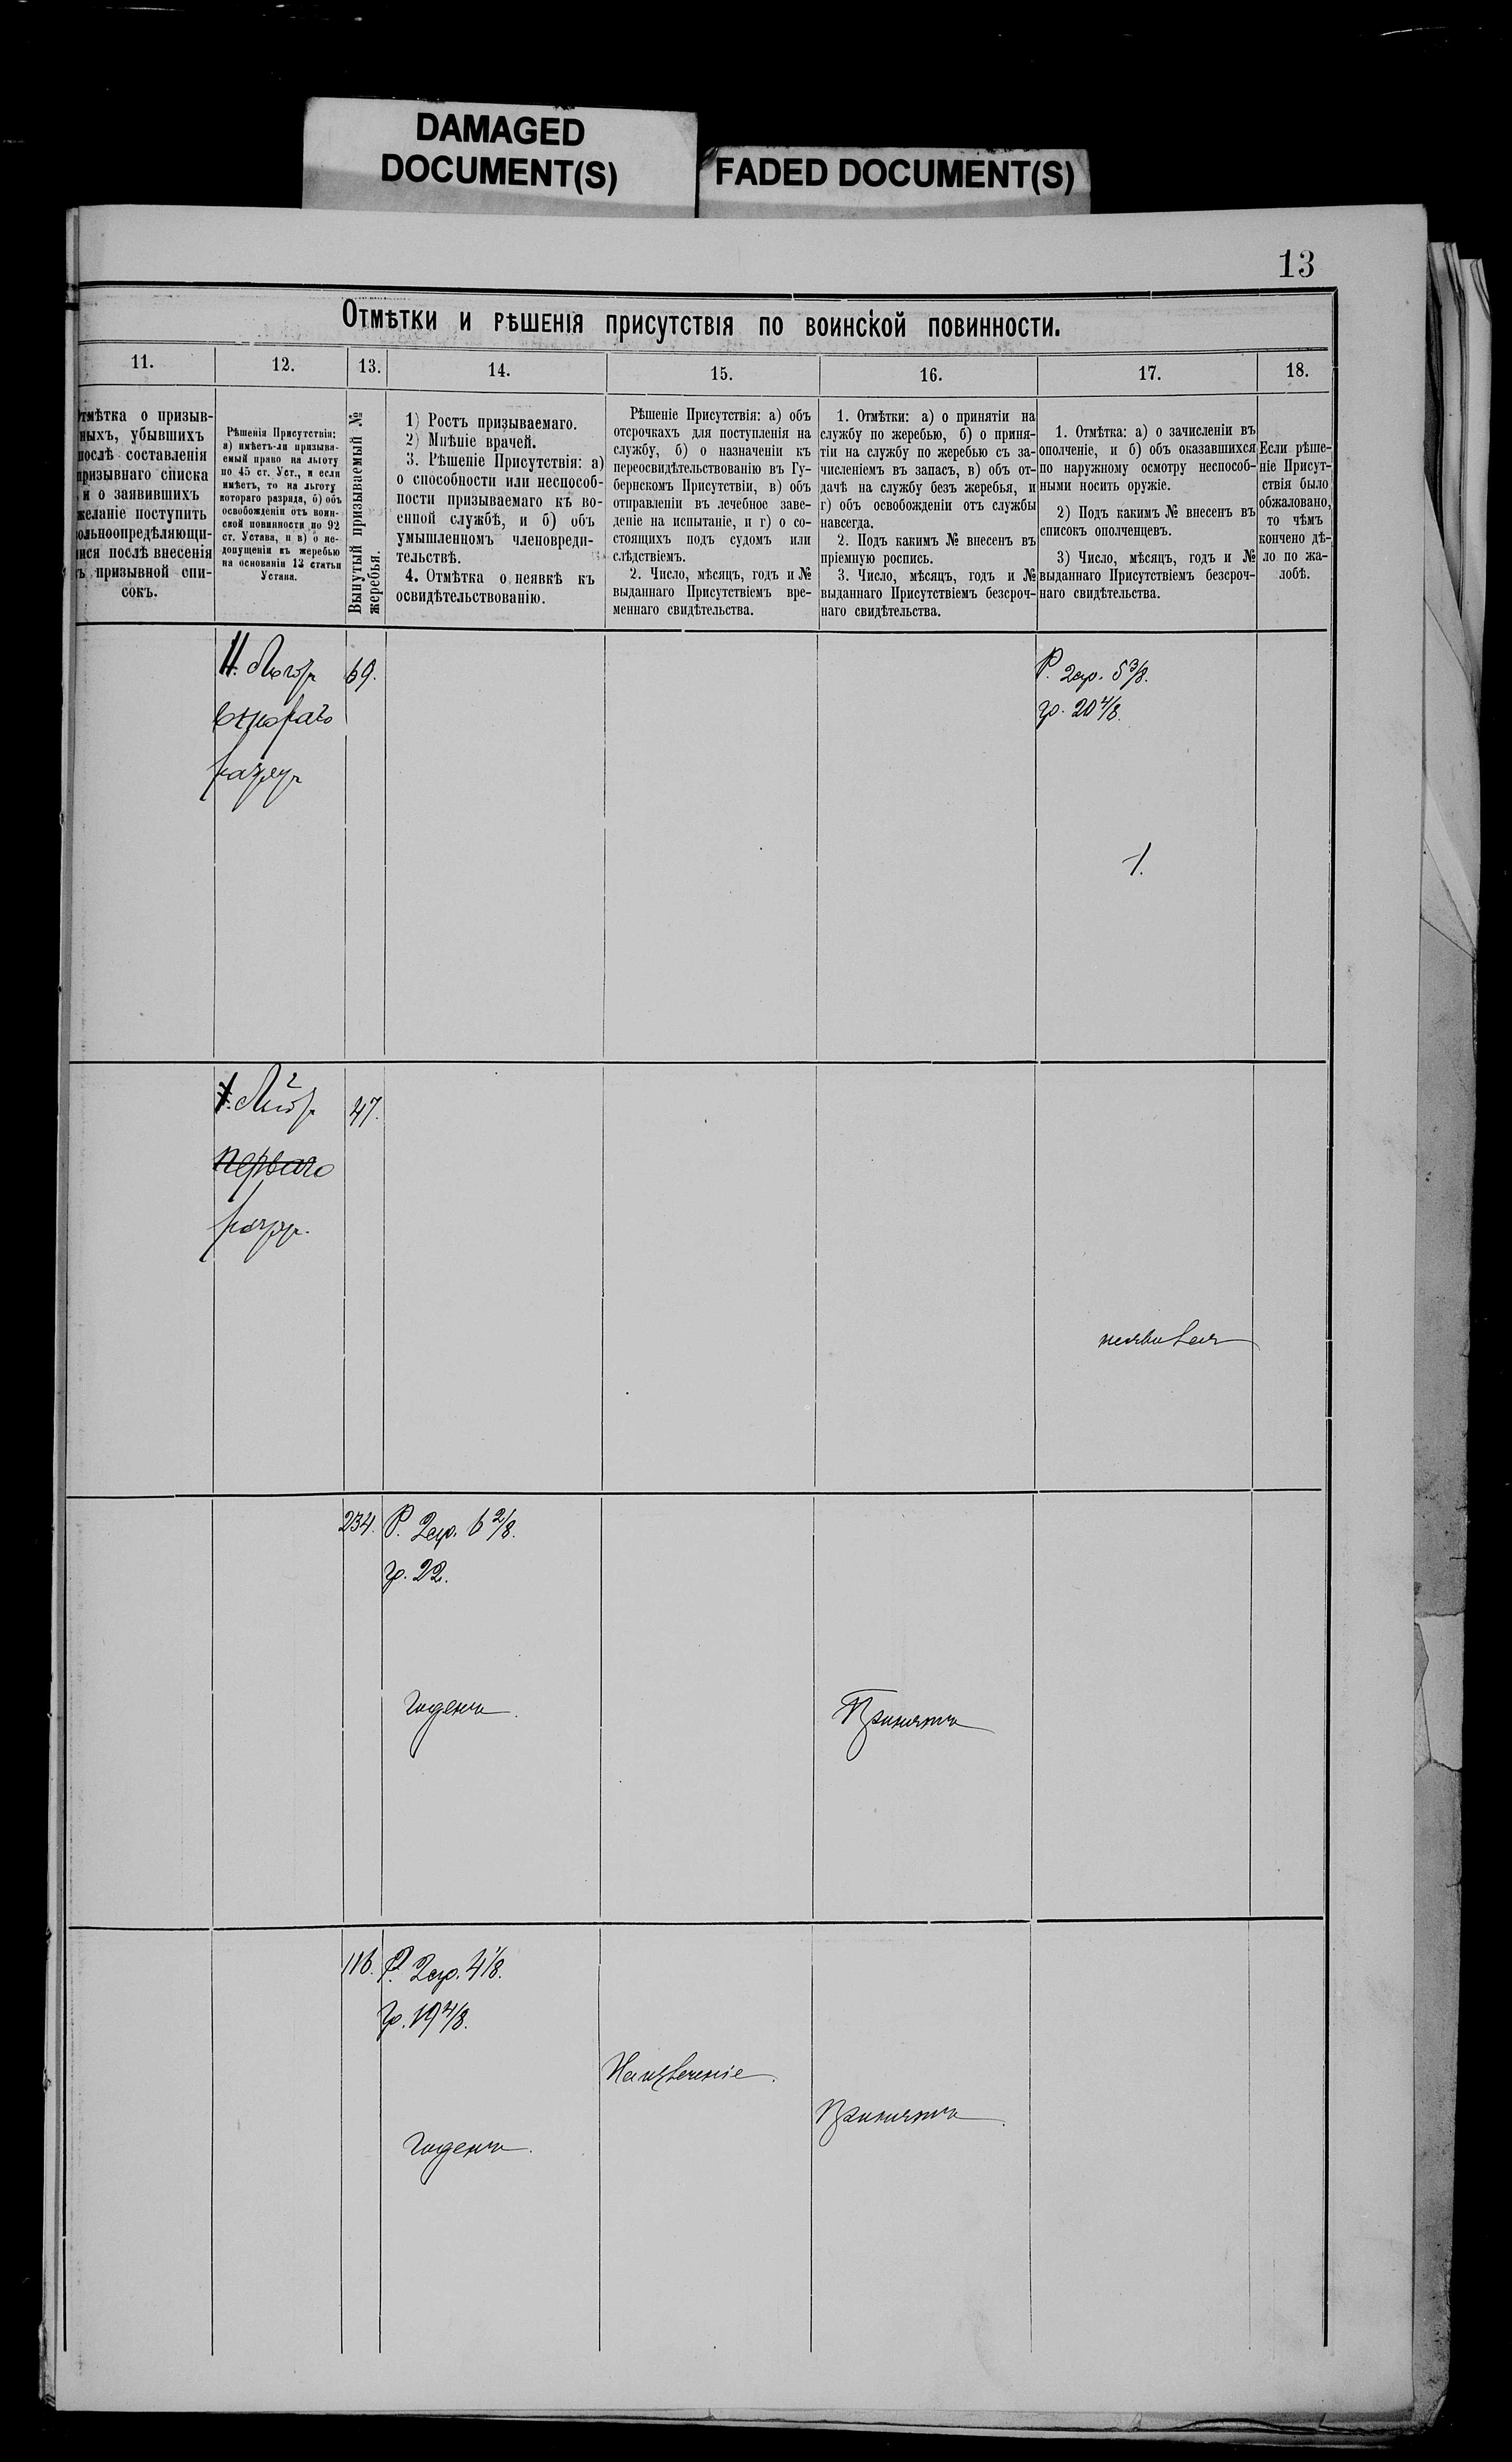 DAMAGED
DOCUMENT(S)
FADED DOCUMENT(S)
13
Отмѣтки и рѣшенія присутствія по воинской повинности.
11.
12.
13.
14.
15.
16.
17.
18.
тмѣтка о призыв-
ныхъ, убывшихъ
послѣ составленія
призывнаго списка
и о заявившихъ
желаніе поступить
ольноопредѣляющи-
ися послѣ внесенія
ъ призывной спи-
сокъ.
Рѣшенія Присутствія:
а) имѣетъ-ли призыва-
емый право на льготу
по 45 ст. Уст., и если
имѣетъ, то на льготу
котораго разряда, б) объ
освобожденіи отъ воин-
ской повинности по 92
ст. Устава, и в) о не-
допущеніи къ жеребью
на основаніи 13 статьи
Устава.
Вынутый призываемый №
жеребья.
1) Ростъ призываемаго.
2) Мнѣніе врачей.
3. Рѣшеніе Присутствія: а)
о способности или неспособ-
ности призываемаго къ во-
енной службѣ, и б) объ
умышленномъ членовреди-
тельствѣ.
4. Отмѣтка о неявкѣ къ
освидѣтельствованію.
Рѣшеніе Присутствія: а) объ
отсрочкахъ для поступленія на
службу, б) о назначеніи къ
переосвидѣтельствованію въ Гу-
бернскомъ Присутствіи, в) объ
отправленіи въ лечебное заве-
деніе на испытаніе, и г) о со-
стоящихъ подъ судомъ или
слѣдствіемъ.
2. Число, мѣсяцъ, годъ и №
выданнаго Присутствіемъ вре-
меннаго свидѣтельства.
1. Отмѣтки: а) о принятіи на
службу по жеребью, б) о приня-
тіи на службу по жеребью съ за-
численіемъ въ запасъ, в) объ от-
дачѣ на службу безъ жеребья, и
г) объ освобожденіи отъ службы
навсегда.
2. Подъ какимъ № внесенъ въ
пріемную роспись.
3. Число, мѣсяцъ, годъ и №
выданнаго Присутствіемъ безсроч-
наго свидѣтельства.
1. Отмѣтка: а) о зачисленіи въ
ополченіе, и б) объ оказавшихся
по наружному осмотру неспособ-
ными носить оружіе.
2) Подъ какимъ № внесенъ въ
списокъ ополченцевъ.
3) Число, мѣсяцъ, годъ и №
выданнаго Присутствіемъ безсроч-
наго свидѣтельства.
Если рѣше-
ніе Присут-
ствія было
обжаловано,
то чѣмъ
кончено дѣ-
ло по жа-
лобѣ.
69.
втораго
разряд
Р. 2ар. 5 3/8.
гр. 20 4/8.
1.
47.
перваго
разр.
неявился
234.
Р. 2ар. 6 2/8.
гр. 22.
Годенъ.
Принятъ
116.
Р. 2ар. 4 1/8.
гр. 19 4/8.
Годенъ.
Принятъ.